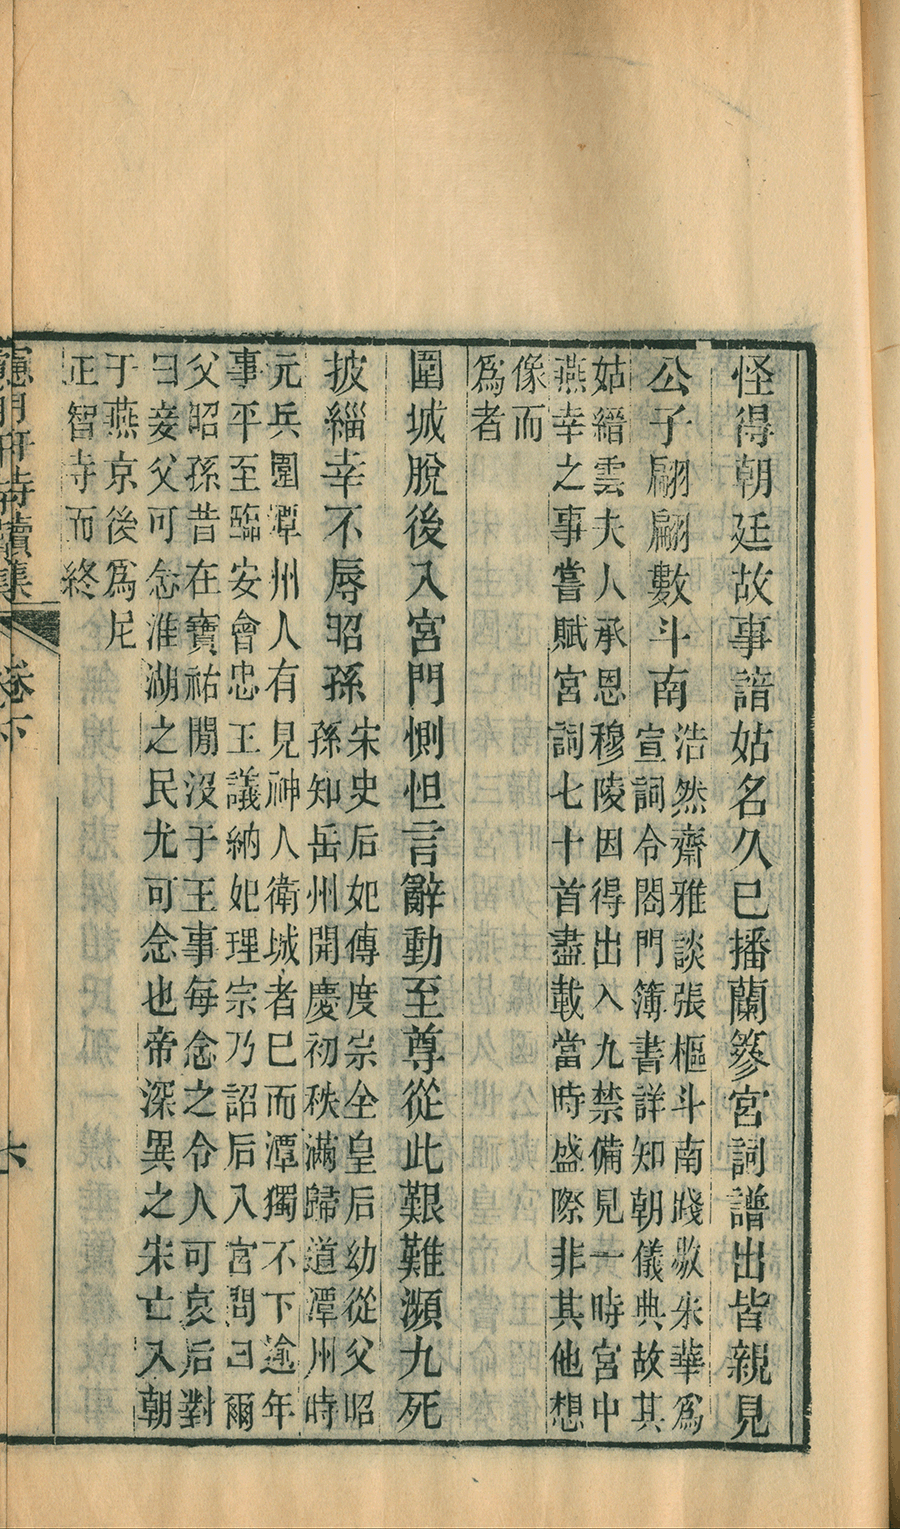 怪得朝廷故事諳姑名久已播蘭簃宮詞譜出皆親見
公子翩翩數斗南
浩然齋雅談張樞斗南踐敭朱華爲
宣詞令閤門簿書詳知朝儀典故其
姑縉雲夫人承恩穆陵因得出入九禁備見一時宮中
燕幸之事嘗賦宮詞七十首盡載當時盛際非其他想
像而
爲者
圍城脫後入宮門惻怛言辭動至尊從此艱難瀕九死
披緇幸不辱昭孫
宋史后妃傳度宗全皇后幼從父昭
孫知岳州開慶初秩滿歸道潭州時
元兵圍潭州人有見神人衛城者已而潭獨不下逾年
事平至臨安會忠王議納妃理宗乃詔后入宮問曰爾
父昭孫昔在寶祐閒沒于王事每念之令人可哀后對
曰妾父可念淮湖之民尤可念也帝深異之宋亡入朝
于燕京後爲尼
正智寺而終
卷下